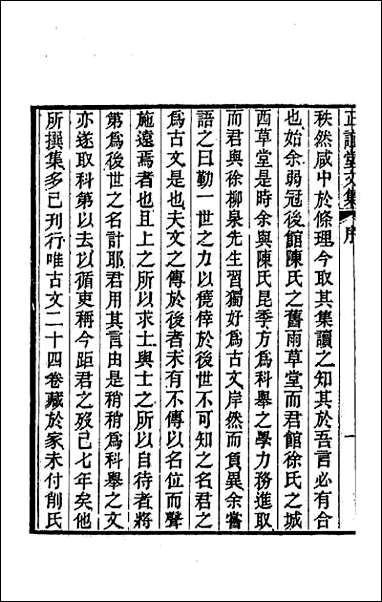 正誼堂文集 序 一
秩然咸中於條理今取其集讀之知其於吾言必有合
也始余弱冠後館陳氏之舊雨草堂而君館徐氏之城
西草堂是時余與陳氏昆季方為科舉之學力務進取
而君與徐柳泉先生習獨好為古文岸然而負異余嘗
語之曰勤一世之力以僥倖於後世不可知之名君之
為古文是也夫文之傳於後者未有不傳以名位而聲
施遠焉者也且上之所以求士與士之所以自待者將
第為後世之名計耶君用其言由是稍稍為科舉之文
亦遂取科第以去以循吏稱今距君之歿已七年矣他
所撰集多已刊行唯古文二十四卷藏於家未付削氏